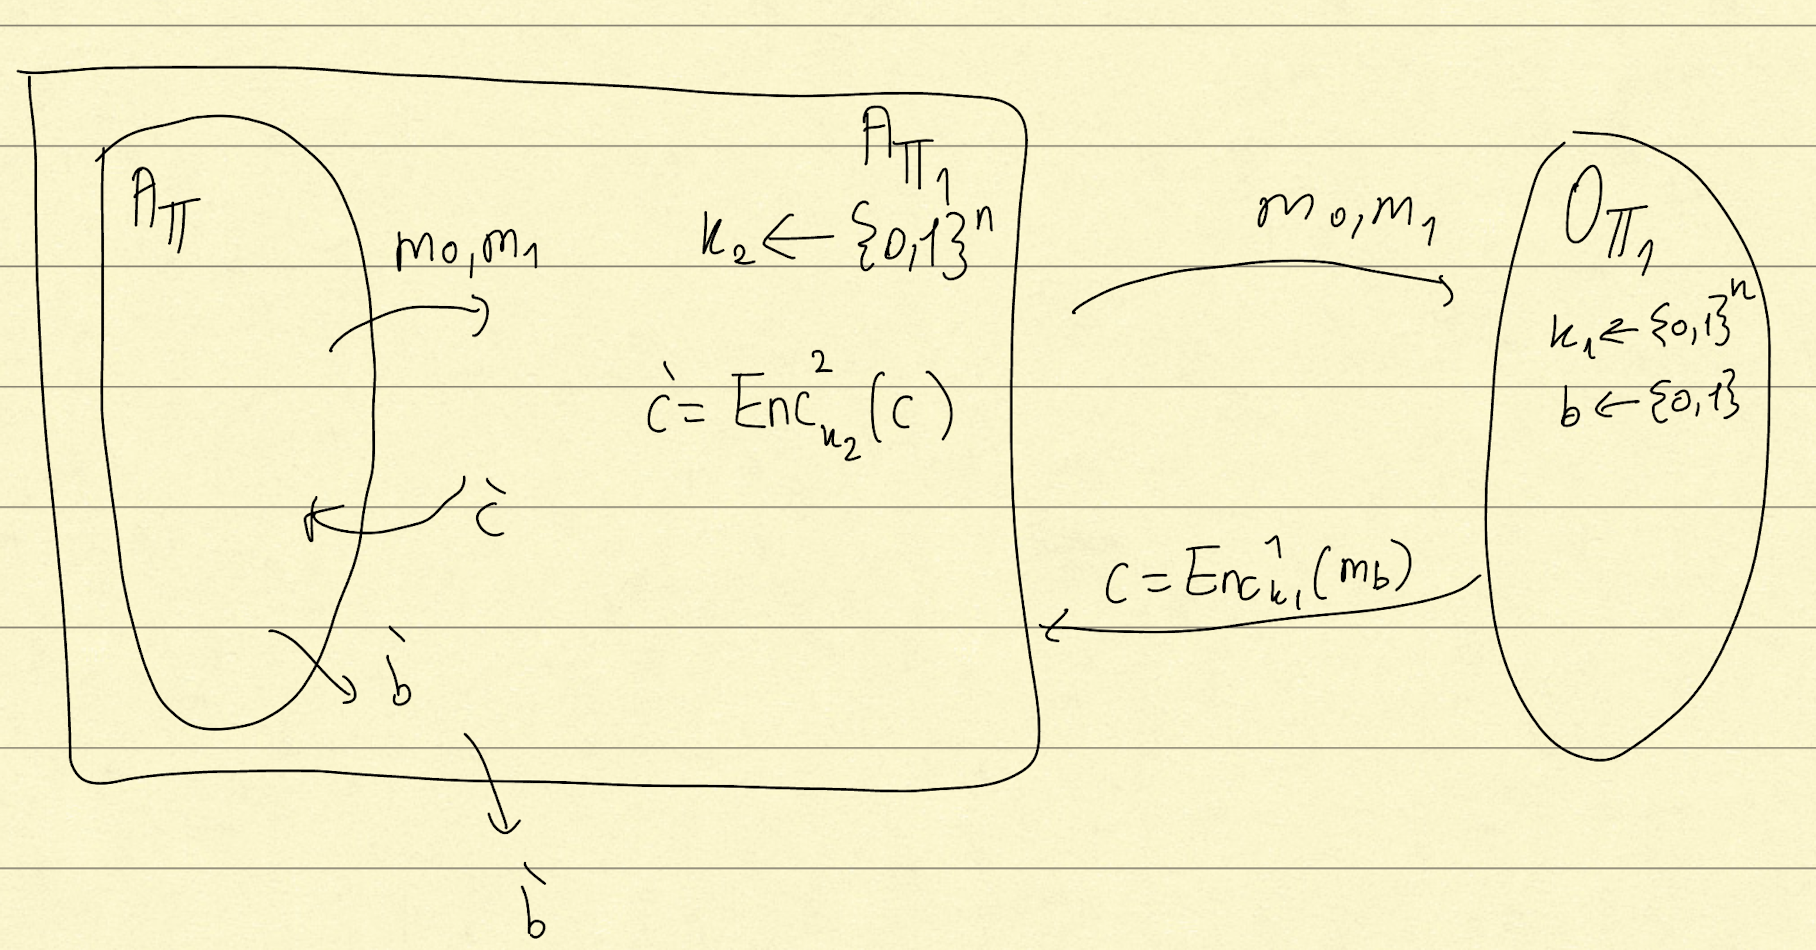 A_Π
m₀, m₁
A_Π₁
k₂ ← {0,1}ⁿ
c̀ = Enc²_k₂(c)
c̀
b̀
b̀
m₀, m₁
C = Enc¹_k₁(m_b)
O_Π₁
k₁ ← {0,1}ⁿ
b ← {0,1}